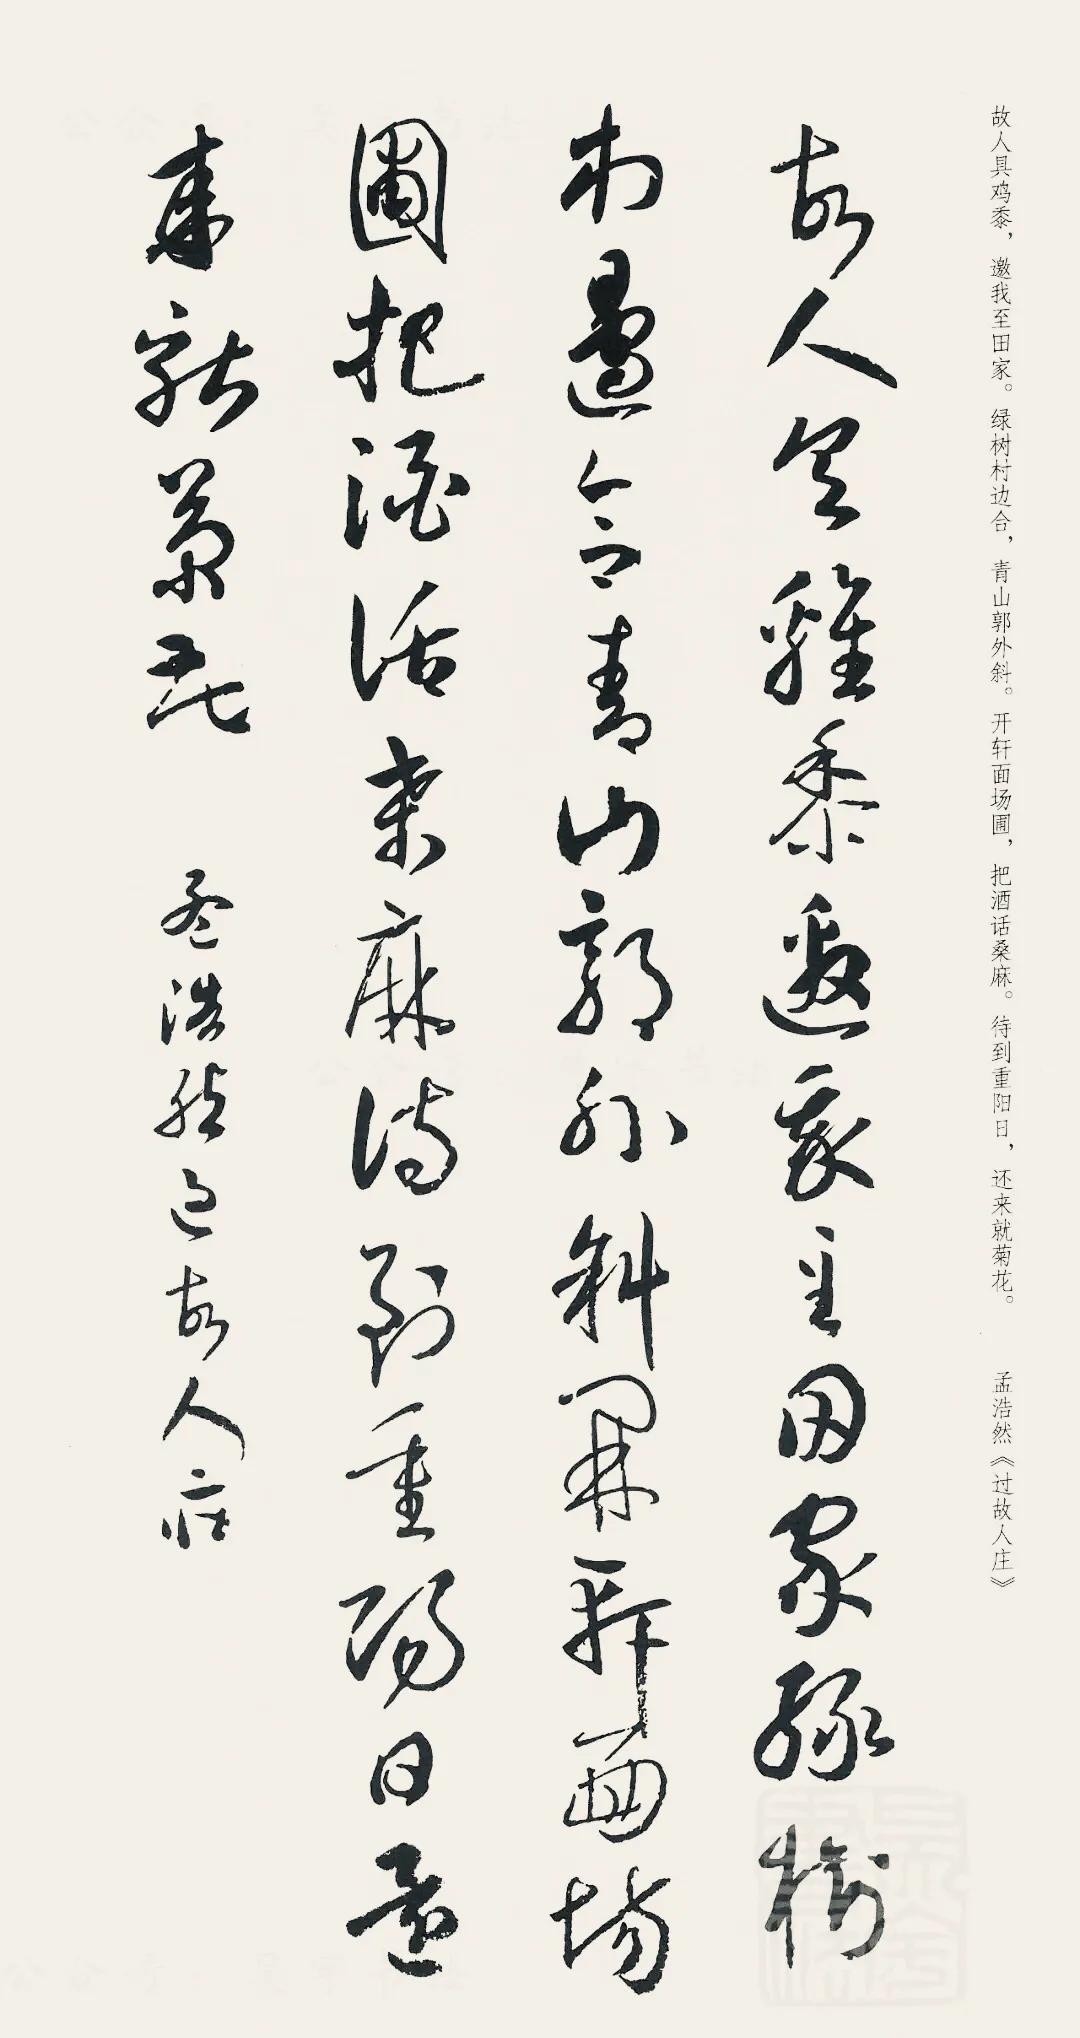 故人具鸡黍，邀我至田家。绿树村边合，青山郭外斜。开轩面场圃，把酒话桑麻。待到重阳日，还来就菊花。 孟浩然《过故人庄》
故人具雞黍邀我至田家緑樹
村邊合青山郭外斜開軒面場
圃把酒話桑麻待到重陽日還
來就菊花 孟浩然過故人莊